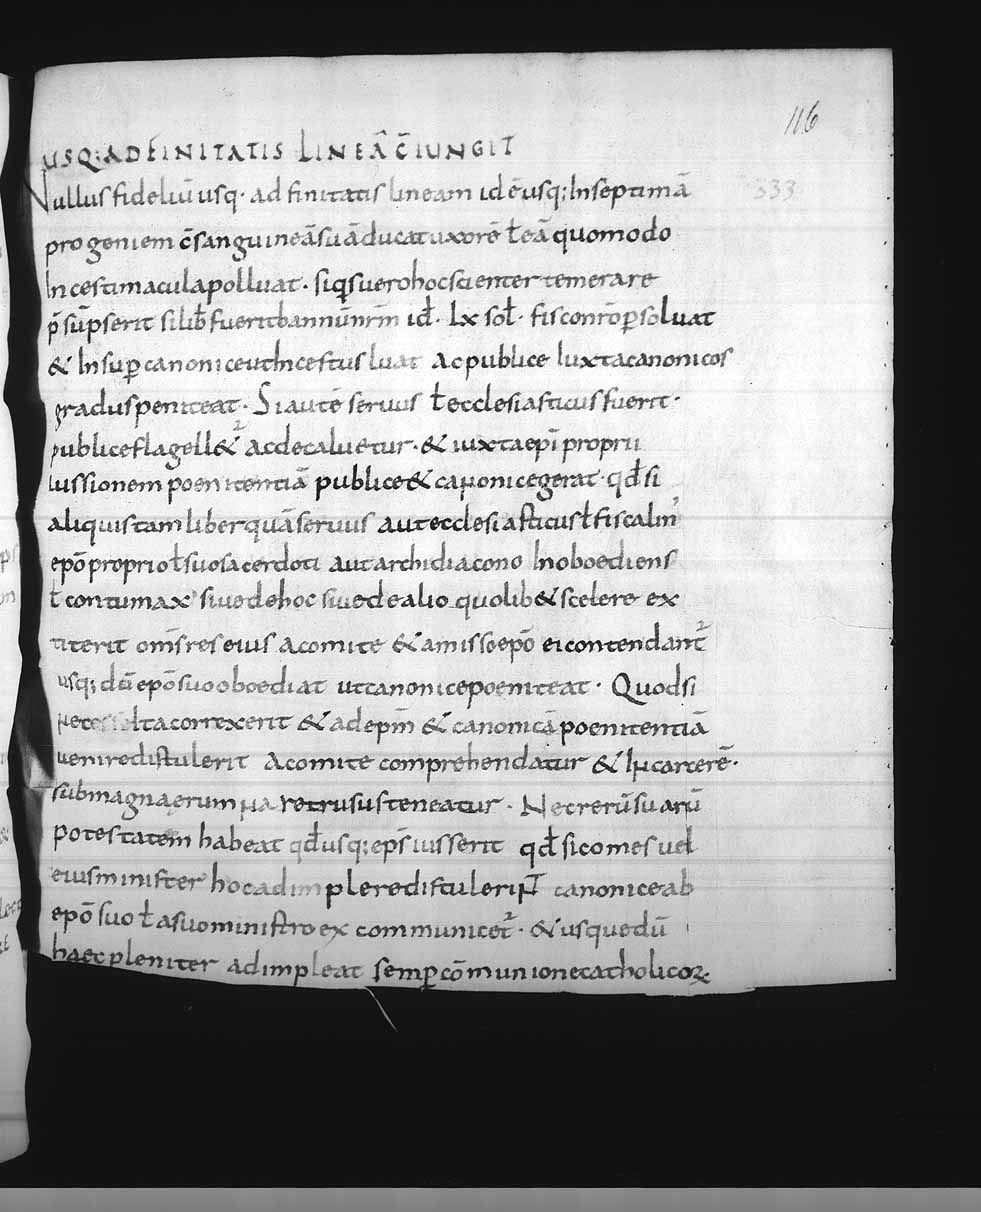 116
333
USQ: ADFINITATIS LINEĀ C̄IUNGIT
Nullus fideliū usq· ad finitatis lineam id ē usq; In septimā
progeniem c̄sanguineā suā ducat uxorē ł eā quomodo
Incesti macula polluat· siqs uero hoc scienter temerare
p̄sūpserit si lib̄ fuerit bannū nr̄m id̄· lx sol̄· fisco nr̄o ꝑsoluat
& Insuꝑ canonice ut Incestus luat ac publice Iuxta canonicos
gradus peniteat· Si autē seruus ł ecclesiasticus fuerit·
publice flagell& ac decaluetur· & iuxta epī proprii
Iussionem poenitentiā publice & canonice gerat· qd̄ si
aliquis tam liber quā seruus aut ecclesiasticus ł fiscalin
epō proprio ł suo sacerdoti aut archidiacono Inoboediens
ł contumax siue de hoc siue de alio quolib& scelere ex
titerit om̄s res eius a comite & a misso epō ei contendant
usq; dū epō suo oboediat ut canonice poeniteat· Quod si
nec correxerit & ad epm̄ & canonicā poenitentiā
uenire distulerit a comite comprehendatur & In carcerē·
sub magna erumna retrusus teneatur· Nec rerū suarū
potestatem habeat qd̄usq; eps̄ iusserit qd̄ si comes uel
eius minister hoc adimplere distulerint canonice ab
epō suo ł a suo ministro excommunicet· & usque dū
haec pleniter adimpleat semꝑ cōmunione catholicoꝝ